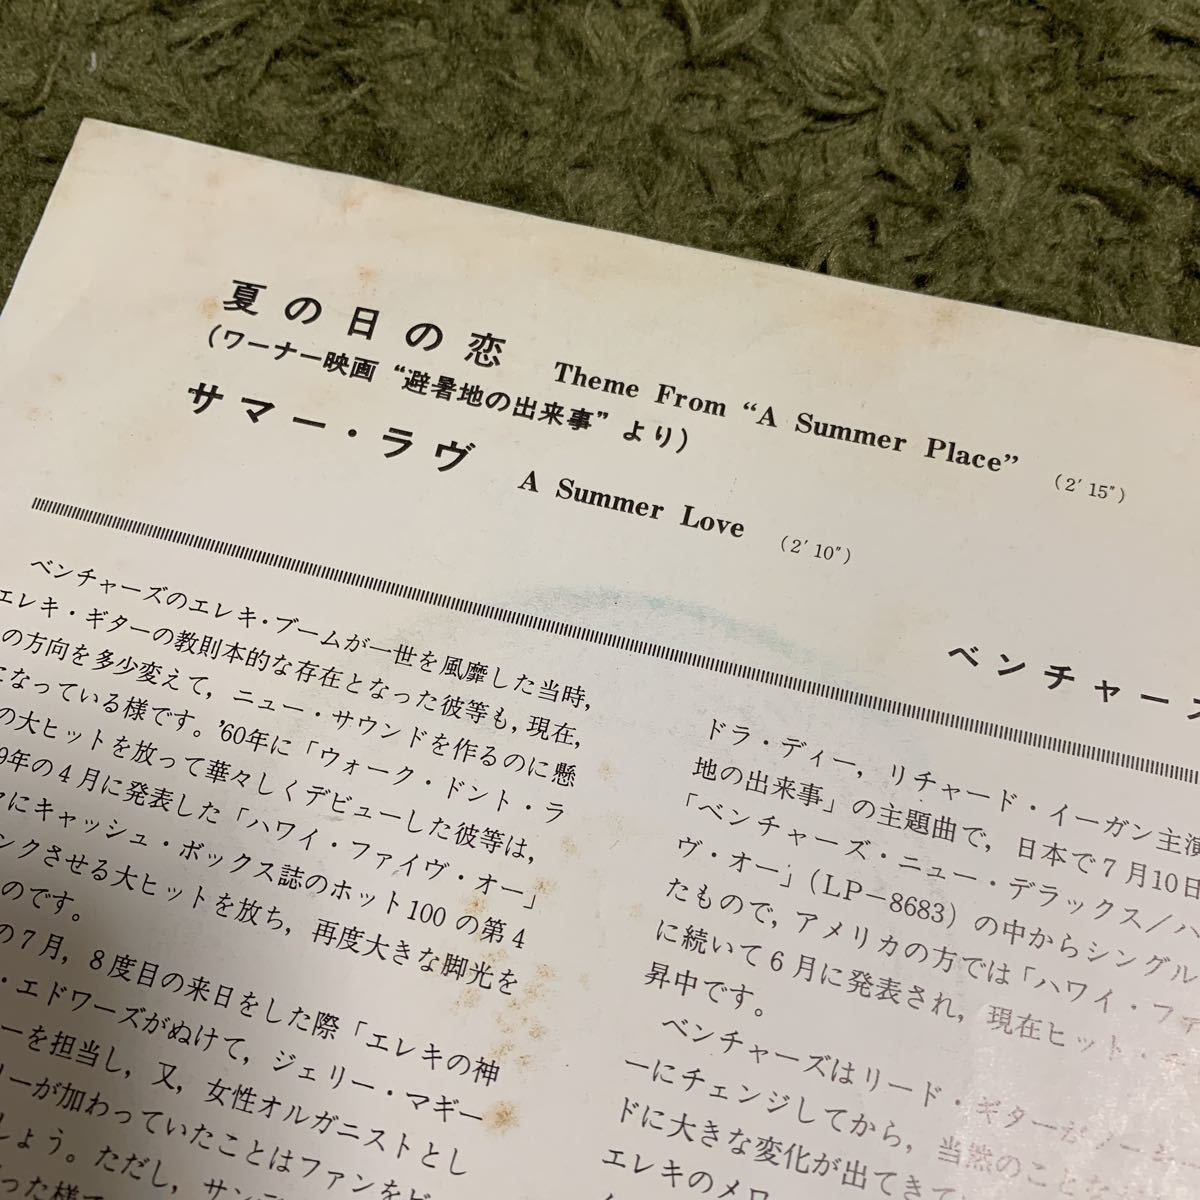 夏の日の恋 Theme From “A Summer Place” (2′15″)
(ワーナー映画“避暑地の出来事”より)
サマー・ラヴ A Summer Love (2′10″)
ベンチャーズ
ベンチャーズのエレキ・ブームが一世を風靡した当時,
エレキ・ギターの教則本的な存在となった彼等も,現在,
の方向を多少変えて,ニュー・サウンドを作るのに懸
になっている様です。’60年に「ウォーク・ドント・ラ
の大ヒットを放って華々しくデビューした彼等は,
9年の4月に発表した「ハワイ・ファイヴ・オー」
にキャッシュ・ボックス誌のホット100の第4
ンクさせる大ヒットを放ち,再度大きな脚光を
のです。
の7月,8度目の来日をした際「エレキの神
・エドワーズがぬけて,ジェリー・マギー
ーを担当し,又,女性オルガニストとし
リーが加わっていたことはファンをビ
しょう。ただし,サン
った様で
ドラ・ディー,リチャード・イーガン主演
地の出来事」の主題曲で,日本で7月10日
「ベンチャーズ・ニュー・デラックス/ハ
ヴ・オー」(LP-8683)の中からシングル
たもので,アメリカの方では「ハワイ・ファ
に続いて6月に発表され,現在ヒット・
昇中です。
ベンチャーズはリード・ギターがノーキー
ーにチェンジしてから,当然のことな
ドに大きな変化が出てきて
エレキのメロ